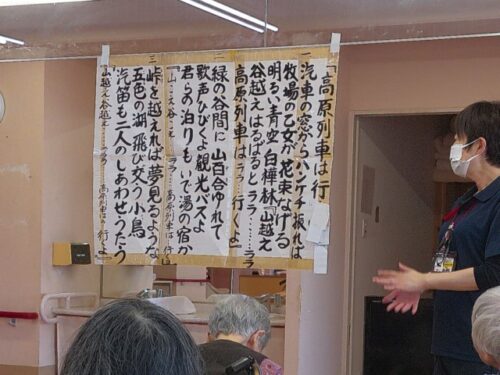 「高原列車は行
一 汽車の窓からハンケチ振れば
牧場の乙女が 花束なげる
明るい青空 白樺林 山越え
谷越えはるばると ララ…ララ
高原列車は ララ…行くよ」
二 緑の谷間に 山百合ゆれて
歌声ひびくよ 観光バスよ
君らの泊りも いで湯の宿か
三 峠を越えれば 夢見るような
五色の湖 飛び交う小鳥
汽笛も二人の しあわせうたう
山越え谷越え…ララ…高原列車はララ…行くよ」